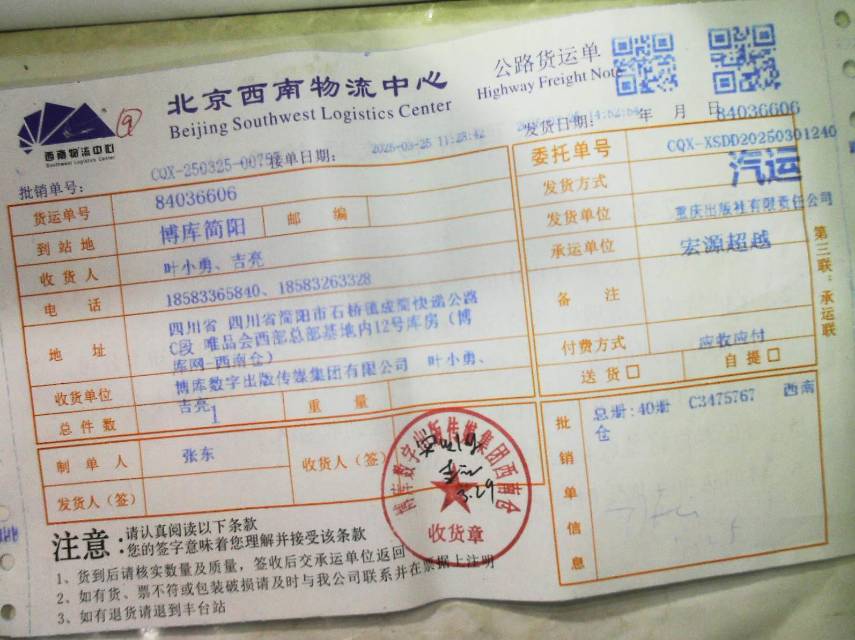 西南物流中心
Southwest Logistics Center
9
北京西南物流中心
Beijing Southwest Logistics Center
公路货运单
Highway Freight Note
批销单号：
CQX-250325-0075
接单日期：
2025-03-25 11:28:42
发货日期：
年 月 日
84036606
货运单号 84036606
委托单号 CQX-XSDD20250301240
到站地 博库简阳 邮编
发货方式 汽运
收货人 叶小勇、吉亮
发货单位 重庆出版社有限责任公司
电话 18583365840、18583263328
承运单位 宏源超越
地址 四川省 四川省简阳市石桥镇成简快递公路
C段 唯品会西部总部基地内12号库房（博
库网-西南仓）
备注
收货单位 博库数字出版传媒集团有限公司 叶小勇、
吉亮
付费方式 应收应付
总件数 1 重量
送货□ 自提□
制单人 张东
收货人（签）
发货人（签）
3.29
博库数字出版传媒集团西南仓
收货章
批销单信息
总册:40册 C3475767 西南
仓
第三联：承运联
注意：
请认真阅读以下条款
您的签字意味着您理解并接受该条款
1、货到后请核实数量及质量，签收后交承运单位返回
2、如有货、票不符或包装破损请及时与我公司联系并在票据上注明
3、如有退货请退到丰台站